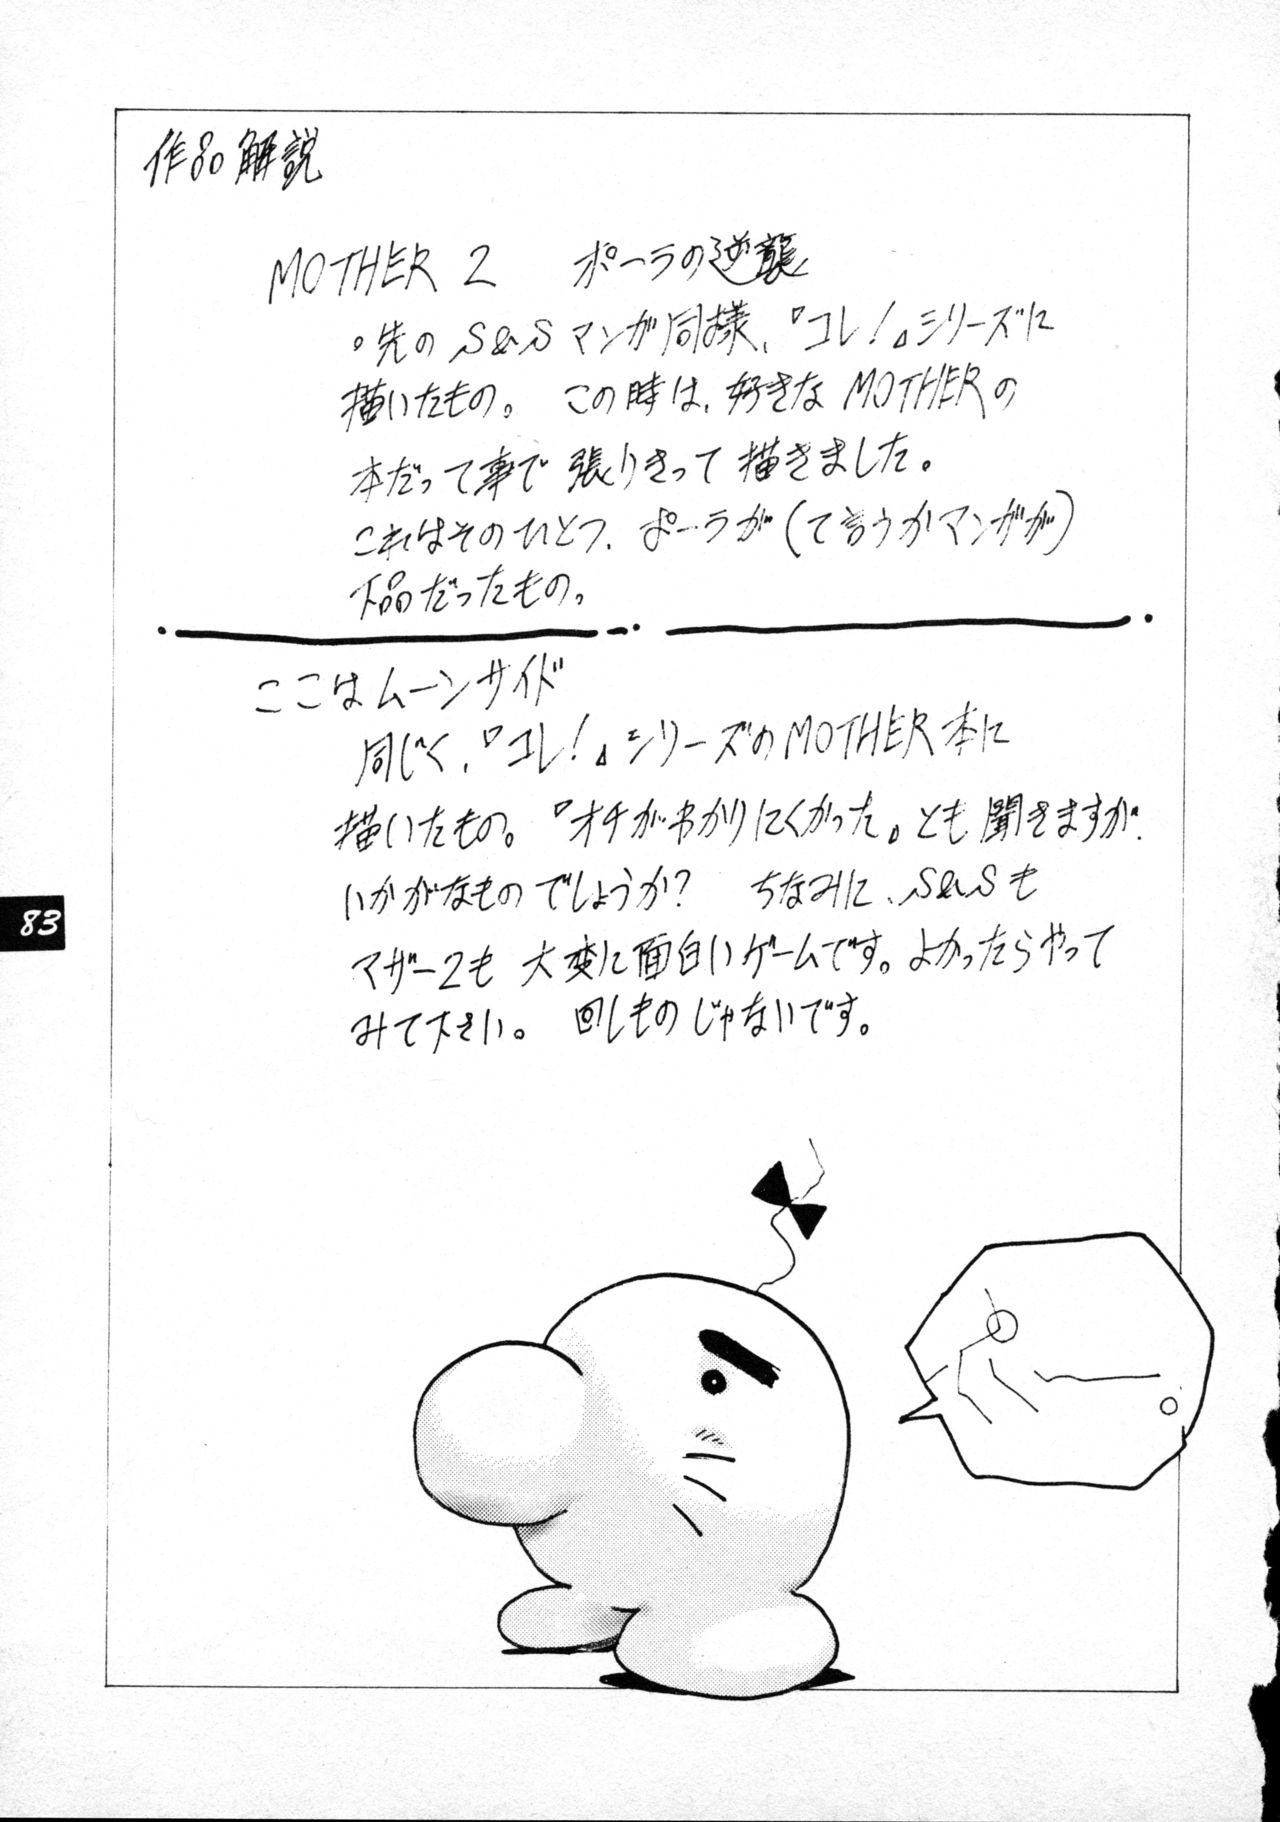 作品解説
MOTHER 2　ポーラの逆襲
。先の S&S マンガ同様、『コレ!』シリーズに
描いたもの。この時は、好きな MOTHERの
本だって事で 張りきって 描きました。
これはそのひとつ、ポーラが(て言うかマンガが)
下品だったもの。
ここはムーンサイド
同じく、『コレ!』シリーズのMOTHER本に
描いたもの。『オチがわかりにくかった』とも 聞きますが、
いかがなものでしょうか?　ちなみに、S&Sも
マザー2も 大変に面白いゲームです。よかったらやって
みて下さい。回しものじゃないです。
83